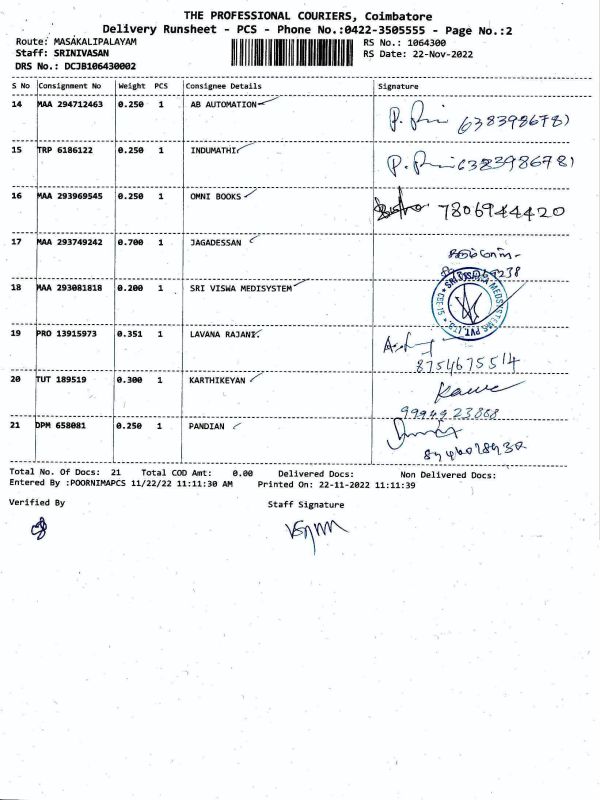 THE PROFESSIONAL COURIERS, Coimbatore
Delivery Runsheet - PCS - Phone No.:0422-3505555 - Page No.:2
Route: MASAKALIPALAYAM RS No.: 1064300
Staff: SRINIVASAN RS Date: 22-Nov-2022
DRS No.: DCJB106430002
S No Consignment No Weight PCS Consignee Details Signature
14 MAA 294712463 0.250 1 AB AUTOMATION 6383986781
15 TRP 6186122 0.250 1 INDUMATHI 6383986781
16 MAA 293969545 0.250 1 OMNI BOOKS 7806944420
17 MAA 293749242 0.700 1 JAGADESSAN
18 MAA 293081818 0.200 1 SRI VISWA MEDISYSTEM
19 PRO 13915973 0.351 1 LAVANA RAJANI. 8754675514
20 TUT 189519 0.300 1 KARTHIKEYAN
9994923868
21 DPM 658081 0.250 1 PANDIAN
Total No. Of Docs: 21 Total COD Amt: 0.00 Delivered Docs: Non Delivered Docs:
Entered By :POORNIMAPCS 11/22/22 11:11:30 AM Printed On: 22-11-2022 11:11:39
Verified By Staff Signature